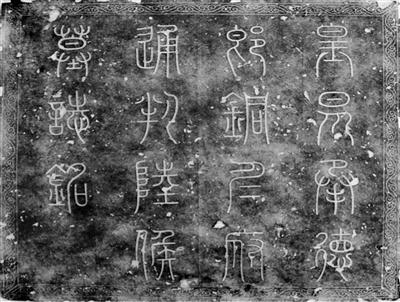 皇明承德
郎銅仁府
通判陸侯
墓誌銘